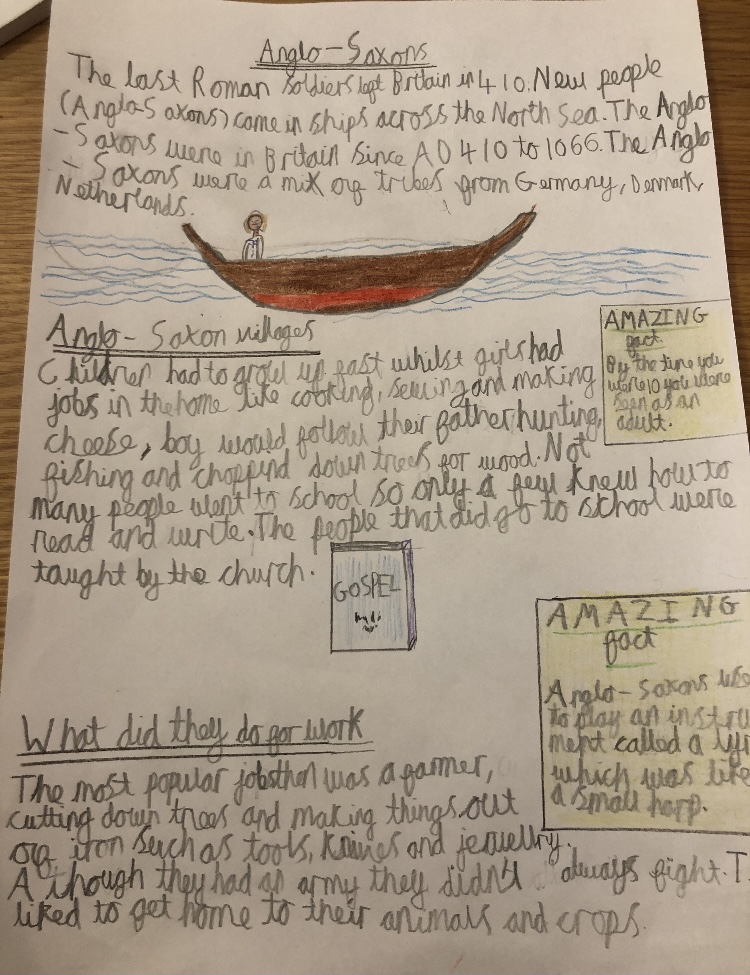 Anglo-Saxons
The last Roman soldiers left Britain in 410. New people
(Anglo-Saxons) came in ships across the North Sea. The Anglo
-Saxons were in Britain since AD 410 to 1066. The Anglo
- Saxons were a mix of tribes from Germany, Denmark,
Netherlands.
Anglo-Saxon villages
Children had to grow up fast whilst girls had
jobs in the home like cooking, sewing and making
cheese, boy would follow their father hunting,
fishing and choppind down trees for wood. Not
many people went to school so only a few knew how to
read and write. The people that did go to school were
taught by the church.
AMAZING
fact.
By the time you
were 10 you were
seen as an
adult.
GOSPEL
AMAZING
fact
Anglo-Saxons
to play an instru
ment called a
which was like
a small harp.
What did they do for work
The most popular jobs was a farmer,
cutting down trees and making things out
of iron such as tools, knives and jewellry.
Although they had an army they didn't always fight. T
liked to get home to their animals and crops.